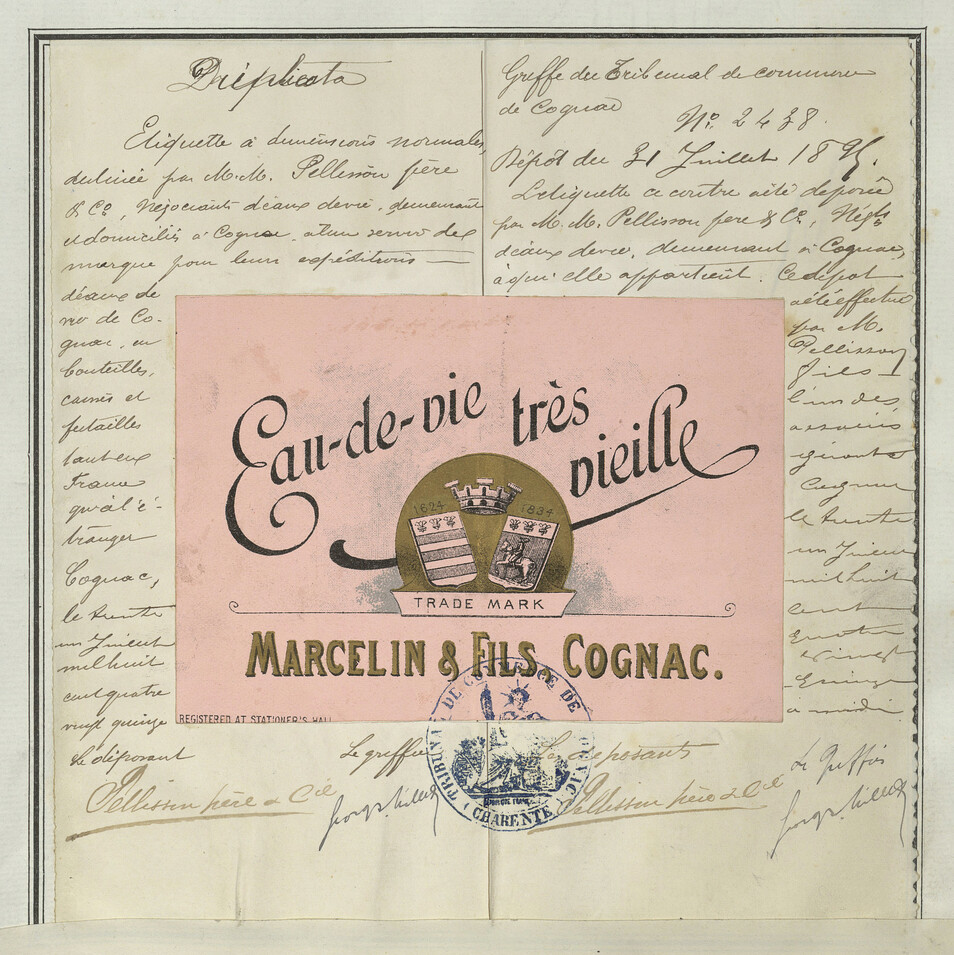 Duplicata
Etiquette à dimensions normales,
destinée par M.M. Pellisson père
& Co, Négociants d'eaux de vie, demeurant
et domiciliés à Cognac, à leur servir de
marque pour leurs expéditions
d'eaux de
vie de Co-
gnac, en
bouteilles,
caisses et
futailles
tant en
France
qu'à l'é-
tranger
Cognac,
le trente
un Juillet
mil huit
cent quatre
vingt quinze
Le déposant
Pellisson père & Cie
Le greffier
Greffe du Tribunal de commerce
de Cognac
No. 2438.
Dépôt du 31 Juillet 1895.
L'etiquette ci contre a été déposée
par M.M. Pellisson père & Co, Négts
d'eaux de vie, demeurant à Cognac,
à qui elle appartient. Ce dépot
a été effectué
par M.
Pellisson
fils
l'un des
associés
gérants
Cognac
le trente
un Juillet
mil huit
cent
quatre
vingt
quinze
à midi
Les déposants
Pellisson père & Cie
Le Greffier
Eau-de-vie très
vieille
1624 1834
TRADE MARK
MARCELIN & FILS, COGNAC.
REGISTERED AT STATIONER'S HALL
TRIBUNAL DE COMMERCE DE COGNAC
(CHARENTE)